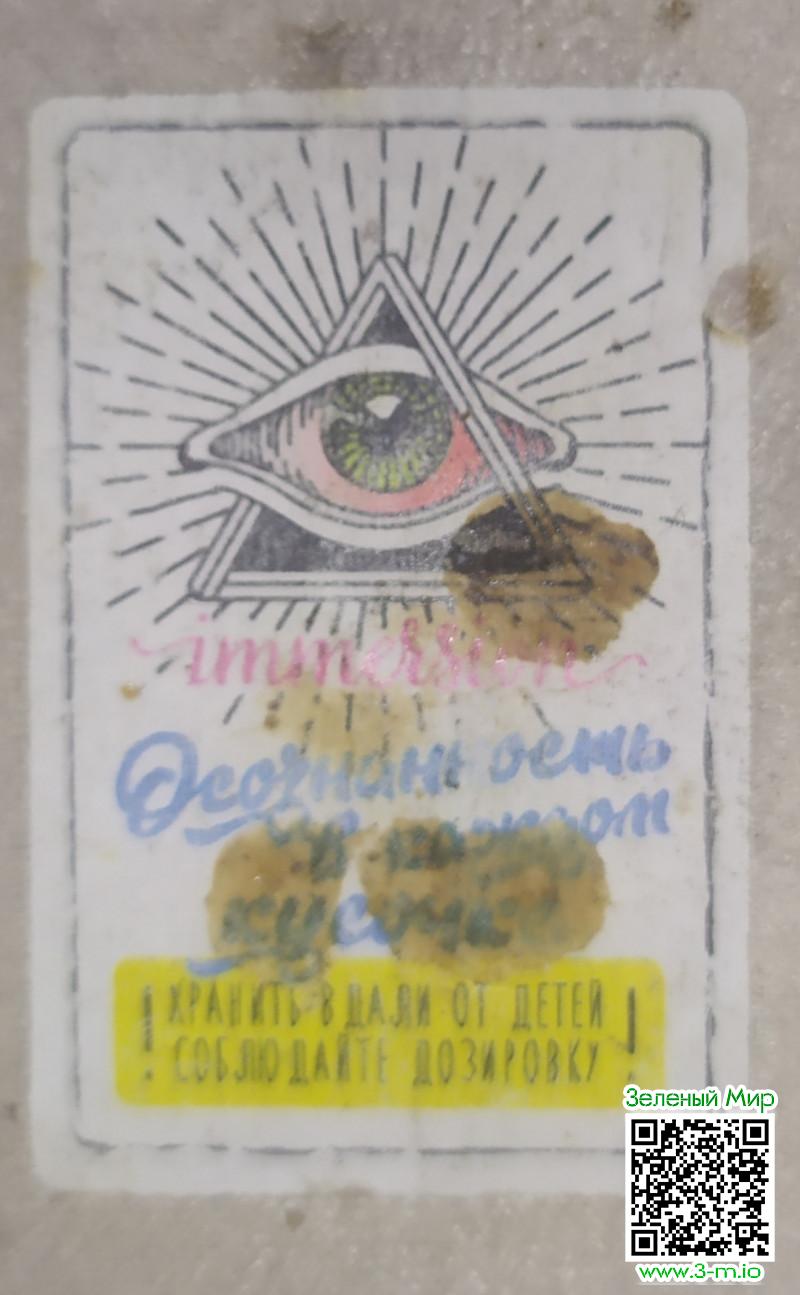 immersion
Осознанность
в каждом
кусочке
! ХРАНИТЬ ВДАЛИ ОТ ДЕТЕЙ
СОБЛЮДАЙТЕ ДОЗИРОВКУ !
Зеленый Мир
www.3-m.io